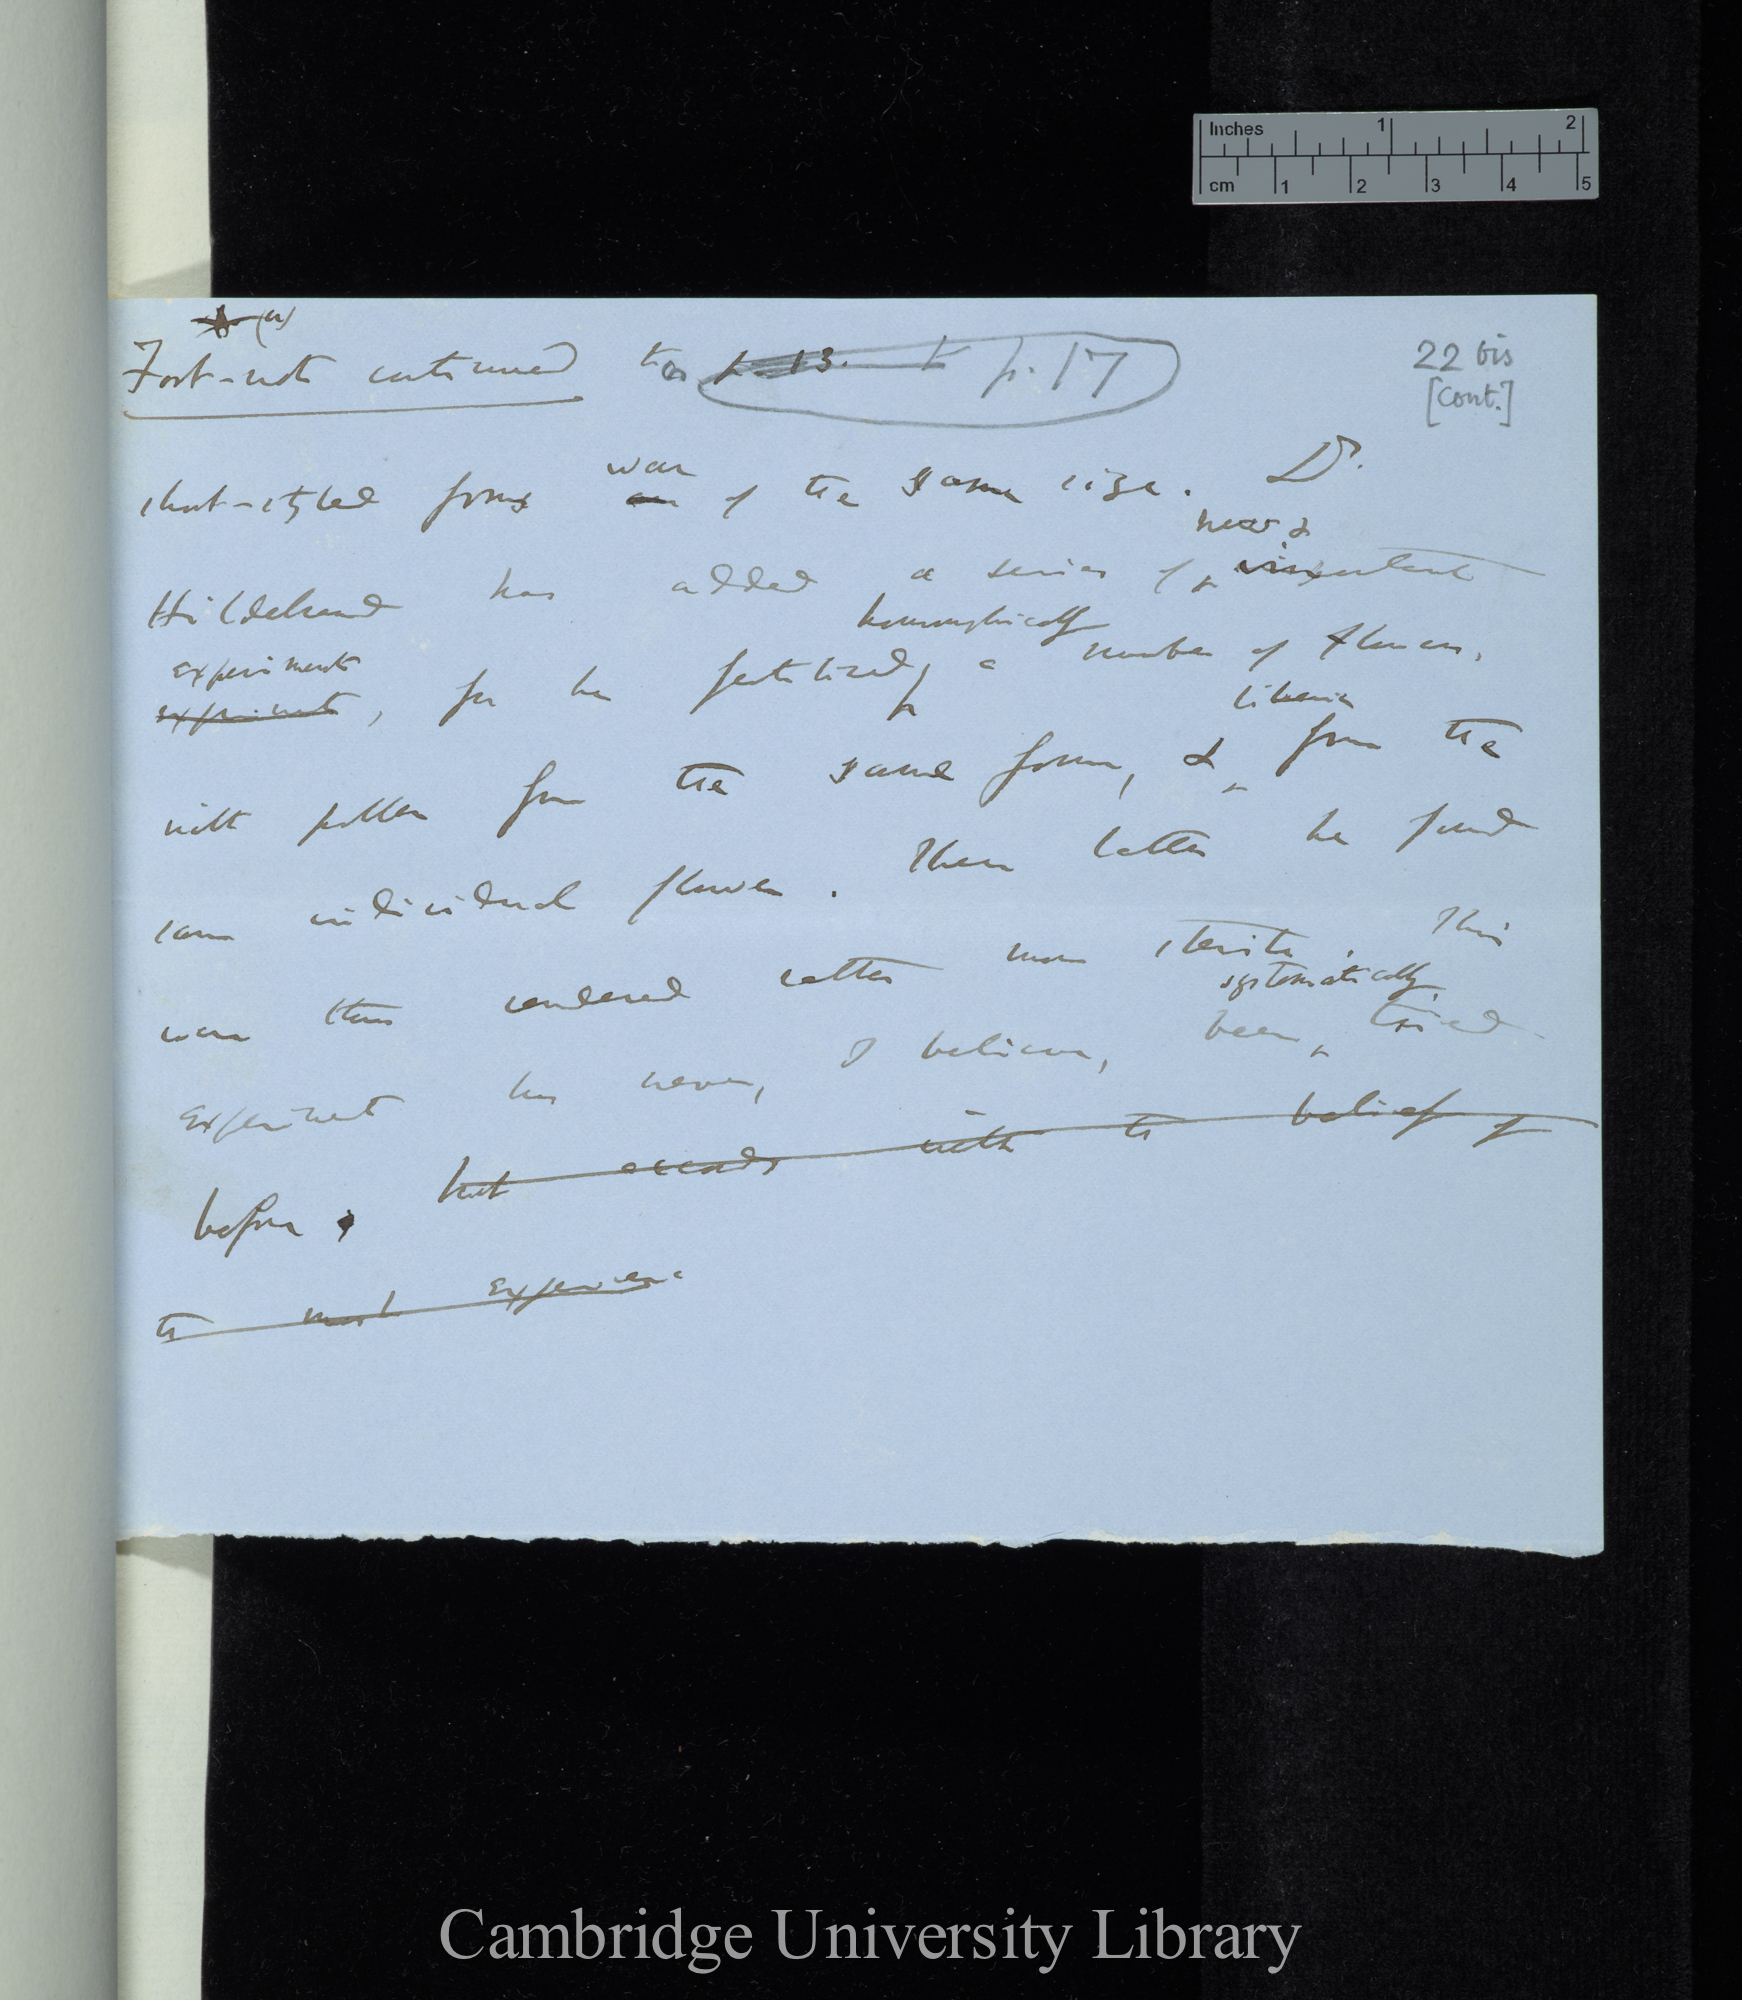 Inches 1 2
cm 1 2 3 4 5
(a)
22 bis
[cont.]
Foot-note continued to p. 13. to p. 17
were
short-styled forms are of the same size. Dr.
new &
Hildebrand has added a series of important
homomorphically
experiments
experiments, for he fertilized, a number of flowers,
likewise
with pollen from the same form, & from the
same individual flower. These latter he found
were thus rendered rather more sterile. This
systematically
experiment has never, I believe, been tried
before. but accords with the belief of
the most experienc
Cambridge University Library